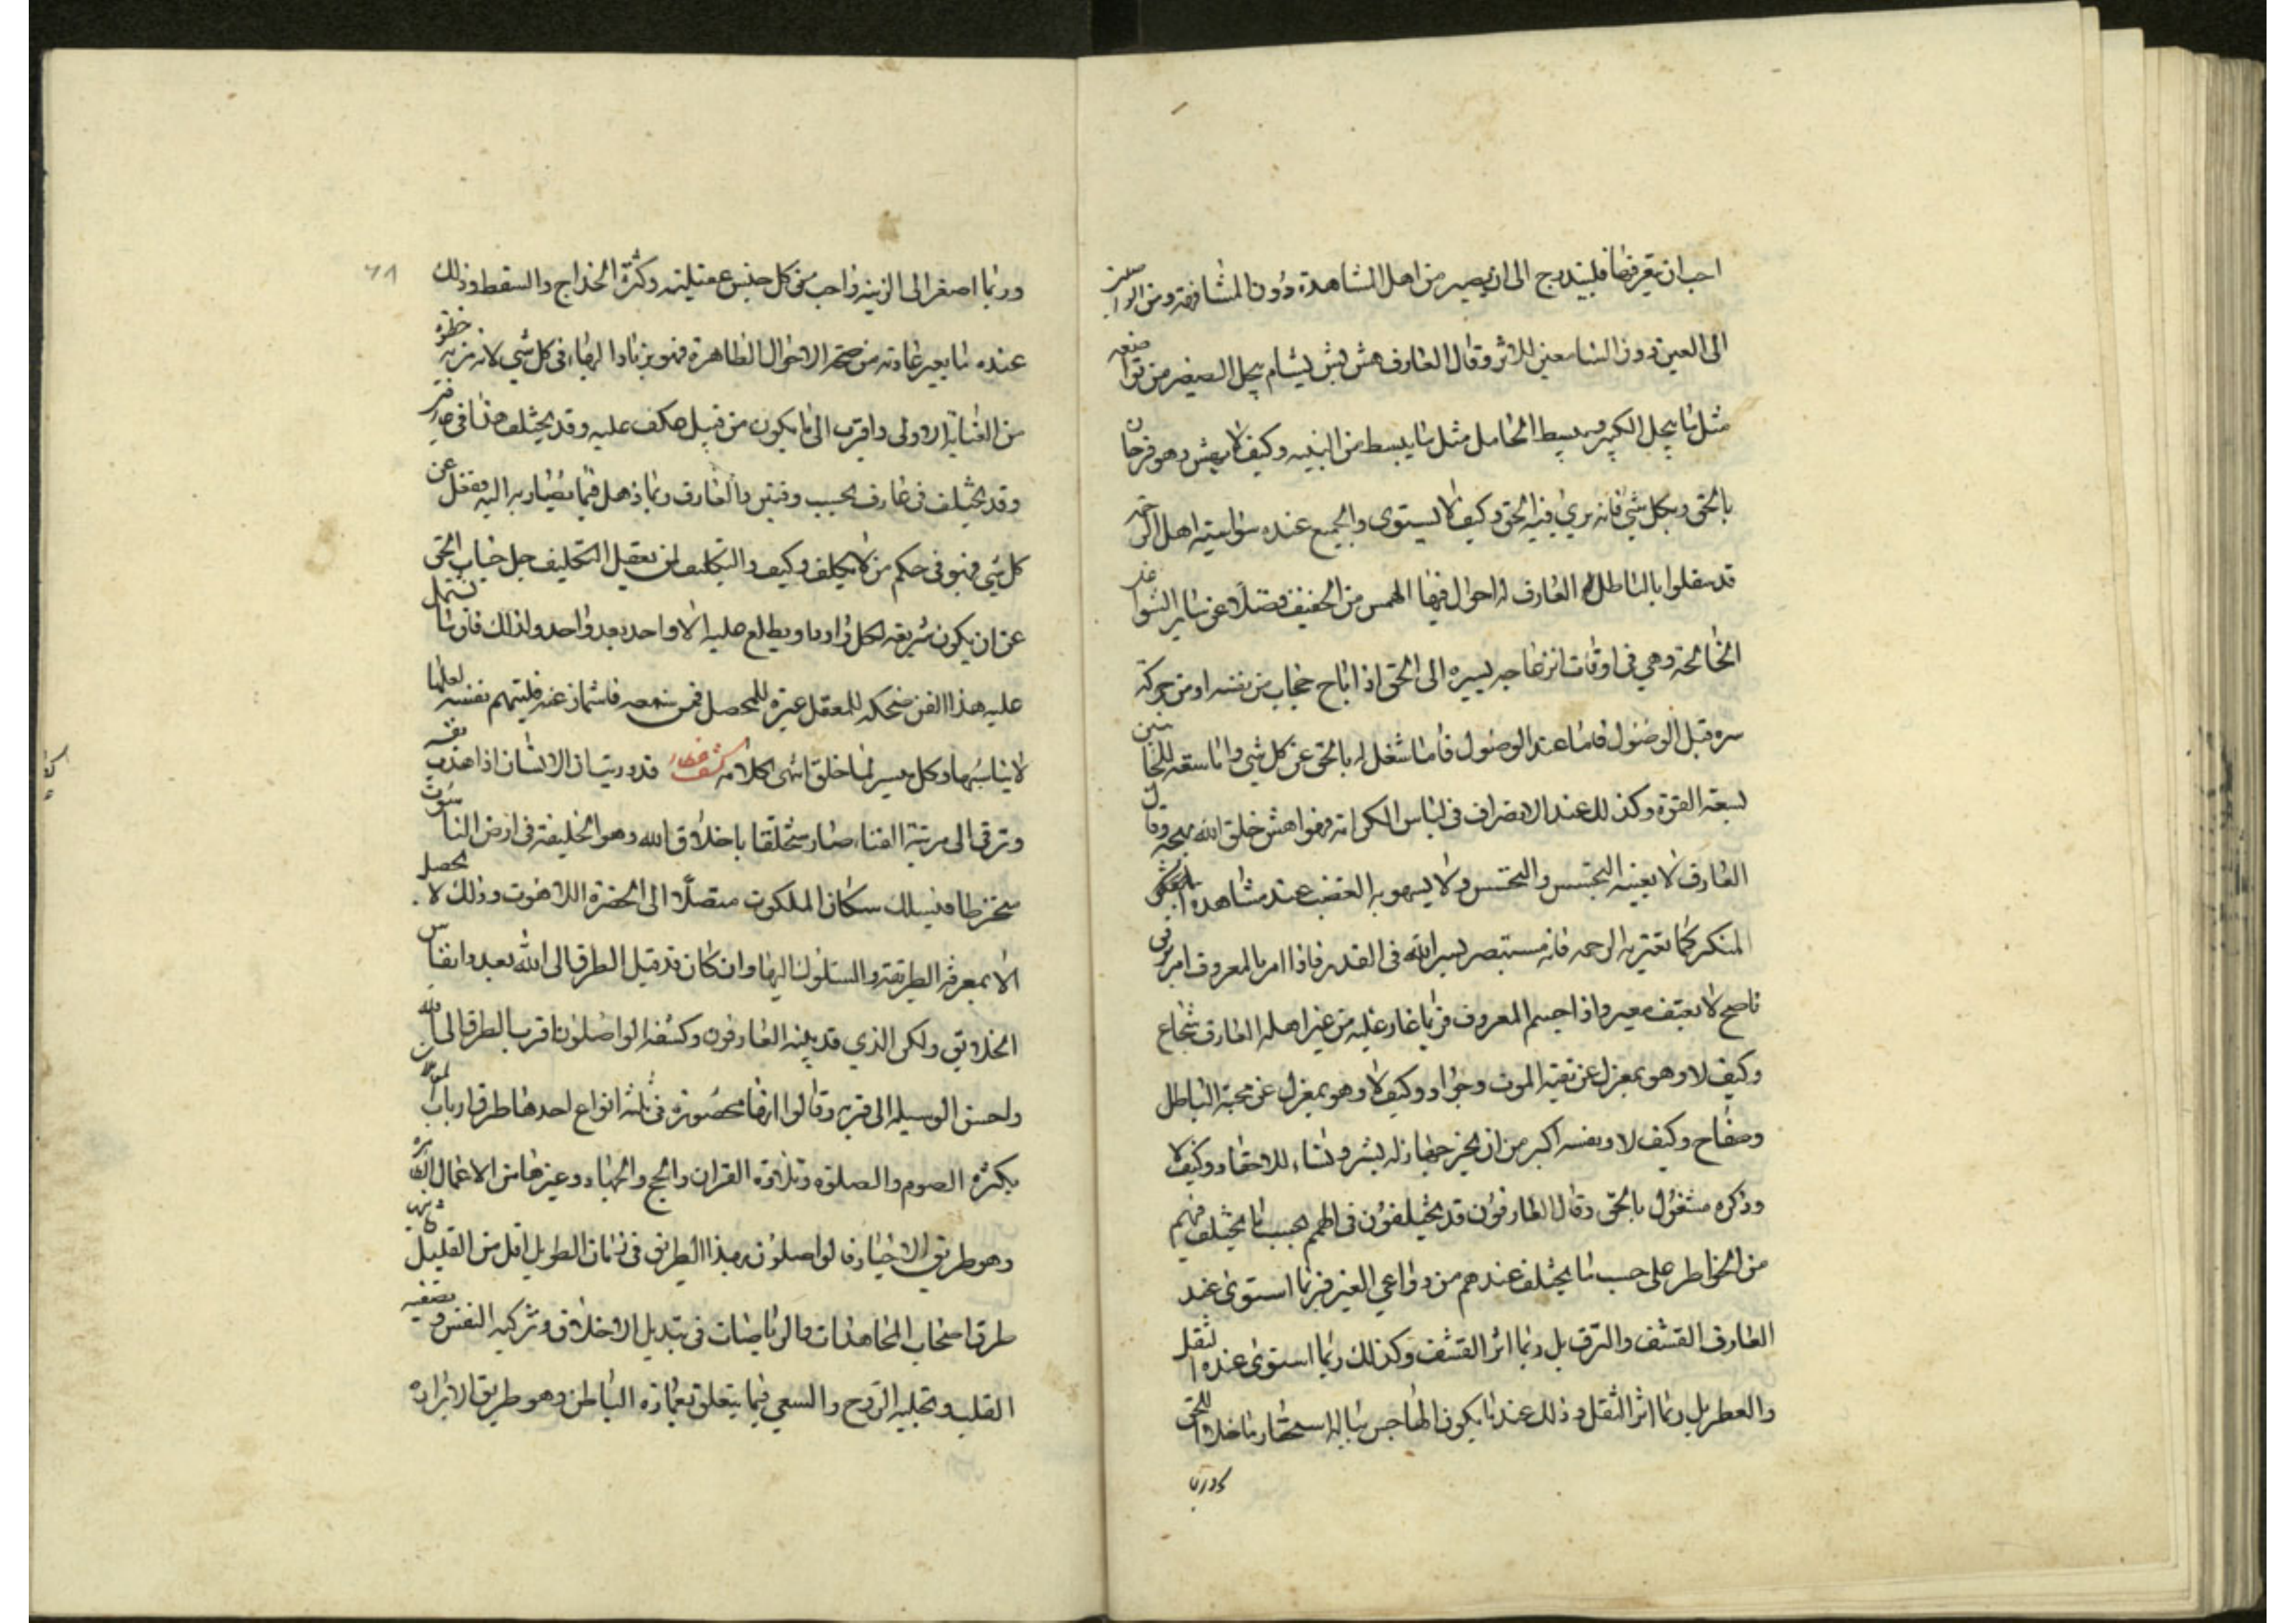 احب ان يتعرفها فليتدرج الى ان يصير من اهل المشاهدة دون المشافهة ومن الواصلين
الى العين دون السامعين للاثر وقال العارف هش بش بسام يبجل الصغير من تواضعه
مثل ما يبجل الكبير ويبسط الخامل مثل ما يبسط من النبيه وكيف لا يهش وهو فرحان
بالحق وبكل شي فانه يرى فيه الحق وكيف لا يستوى والجميع عنده سواسية اهل الرحمة
قد شغلوا بالباطل العارف له احوال فيها الهمس من الحفيف فضلا عن ساير الشواغل
الخالجة وهي في اوقات انزعاجه بسيره الى الحق اذا تاح حجاب من نفسه او من حركة
سره قبل الوصول فاما عند الوصول فاما شغل له بالحق عن كل شي واما سعة للجانبين
لسعة القوة وكذلك عند الانصراف في لباس الكرامة فهو اهش خلق الله ببهجته وقال
العارف لا يعنيه التجسس والتحسس ولا يستهويه الغضب عند مشاهدة
المنكر كما تعتريه الرحمة فانه مستبصر بسر الله في القدر فاذا امر بالمعروف امر برفق
ناصح لا بعنف معير واذا جسم المعروف فربما غار عليه من غير اهله العارف شجاع
وكيف لا وهو بمعزل عن تقية الموت وجواد وكيف لا وهو بمعزل عن محبة الباطل
وصفاح وكيف لا ونفسه اكبر من ان يجرحها زلة بشر ونساء للاحقاد وكيف لا
وذكره مشغول بالحق وقال العارفون قد يختلفون في الهمم بحسب ما يختلف فيهم
من الخواطر على حسب ما يختلف عندهم من دواعي العبر فربما استوى عند
العارف القشف والترف بل ربما اثر القشف وكذلك ربما استوى عنده التفل
والعطر بل ربما اثر التفل وذلك عندما يكون الهاجس بباله استحقار ما خلا الحق
وربما
٦٨
وربما اصغر الى الزينة واحب من كل جنس عقيلته وكره الخداج والسقط وذلك
عنده ما يعتبر عادته من صحبة الاحوال الظاهرة فهو يرتاد البهاء في كل شي لانه مزية خطوة
من العناية الاولى واقرب الى ما يكون من قبيل ما عكف عليه وقد يختلف هذا في عارفين
وقد يختلف في عارف بحسب وقتين والعارف ربما ذهل فيما يصار به اليه فغفل عن
كل شي فهو في حكم من لا يكلف وكيف والتكليف لمن يعقل التكليف جل جناب الحق
عن ان يكون شريعة لكل وارد او يطلع عليه الا واحد بعد واحد ولذلك فان ما يشتمل
عليه هذا الفن ضحكة للمغفل عبرة للمحصل فمن سمعه فاشماز عنه فليتهم نفسه لعلها
لا تناسبها وكل ميسر لما خلق انتهى كلامه كشف غطاء قد دريت ان الانسان اذا هذب نفسه
وترقى الى مرتبة الفناء صار متخلقا باخلاق الله وهو الخليفة في ارض الناسوت
منخرطا في سلك سكان الملكوت متصلا الى الحضرة اللاهوت وذلك لا يحصل
الا بمعرفة الطريقة والسلوك اليها وان كان قد قيل الطرق الى الله بعدد انفاس
الخلائق ولكن الذي قد بينه العارفون وكشفه الواصلون اقرب الطرق الى الله
واحسن الوسيلة الى قربه وقالوا انها محصورة في ثلثة انواع احدها طرق ارباب المعاملات
بكثرة الصوم والصلوة وتلاوة القران والحج والجهاد وغيرها من الاعمال الظاهرة
وهو طريق الاخيار فالواصلون بهذا الطريق في زمان الطويل اقل من القليل ثانيها
طرق اصحاب المجاهدات والرياضات في تبديل الاخلاق وتزكية النفس وتصفية
القلب وتجلية الروح والسعي فيما يتعلق بعمارة الباطن وهو طريق الابرار